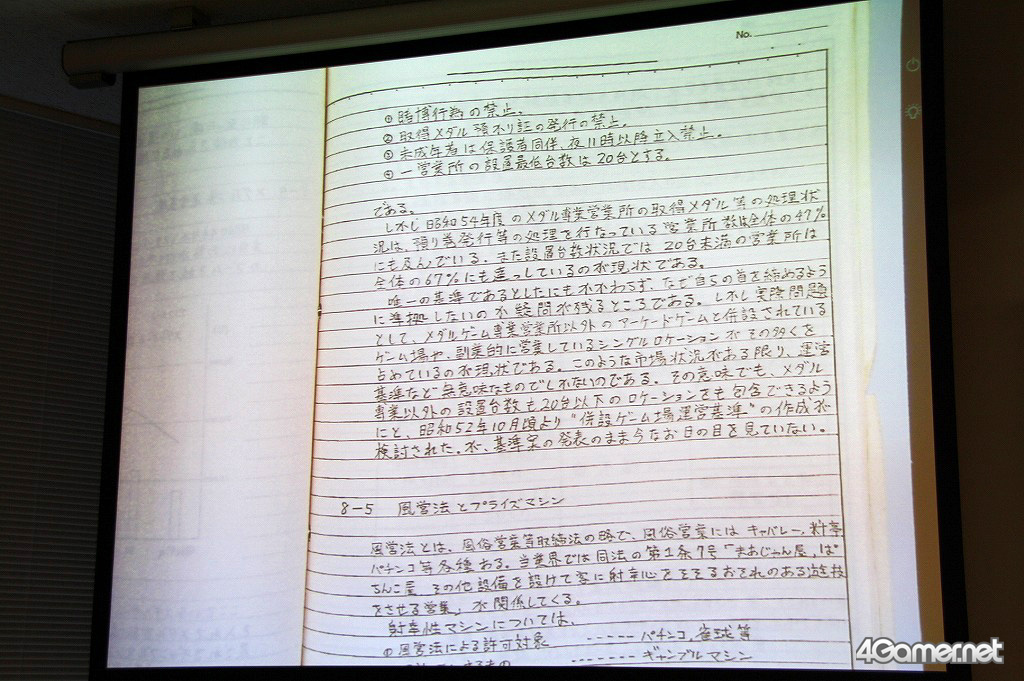 No.
① 賭博行為の禁止。
② 取得メダル預かり証の発行の禁止。
③ 未成年者は保護者同伴、夜11時以降立入禁止。
④ 一営業所の設置最低台数は20台とする。
である。
しかし昭和54年度のメダル専業営業所の取得メダル等の処理状
況は、預り券発行等の処理を行なっている営業所数は全体の47%
にも及んでいる。また設置台数状況では20台未満の営業所は
全体の67%にも達っしているのが現状である。
唯一の基準であるとしたにもかかわらず、なぜ自らの首を締めるよう
に準拠しないのか疑問が残るところである。しかし実際問題
として、メダルゲーム専業営業所以外のアーケードゲームと併設されている
ゲーム場や、副業的に営業しているシングルロケーションがその多くを
占めているのが現状である。このような市場状況がある限り、運営
基準など無意味なものでしかないのである。その意味でも、メダル
専業以外の設置台数も20台以下のロケーションをも包含できるよう
にと、昭和52年10月頃より"併設ゲーム場運営基準"の作成が
検討された。が、基準案の発表のまま今なお日の目を見ていない。
8-5 風営法とプライズマシン
風営法とは、風俗営業等取締法の略で、風俗営業にはキャバレー、料亭
パチンコ等各種ある。当業界では同法の第1条7号「まあじゃん屋、ぱ
ちんこ屋 その他設備を設けて客に射幸心をそそるおそれのある遊技
をさせる営業」が関係してくる。
射幸性マシンについては、
① 風営法による許可対象 ------ パチンコ、雀球等
------- ギャンブルマシン
4Gamer.net